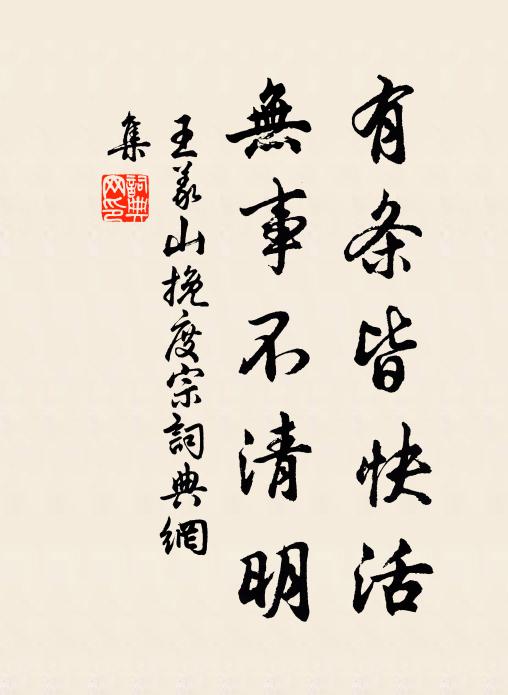 有条皆快活
無事不清明
王義山挽度宗詞典網
集
詞典網印